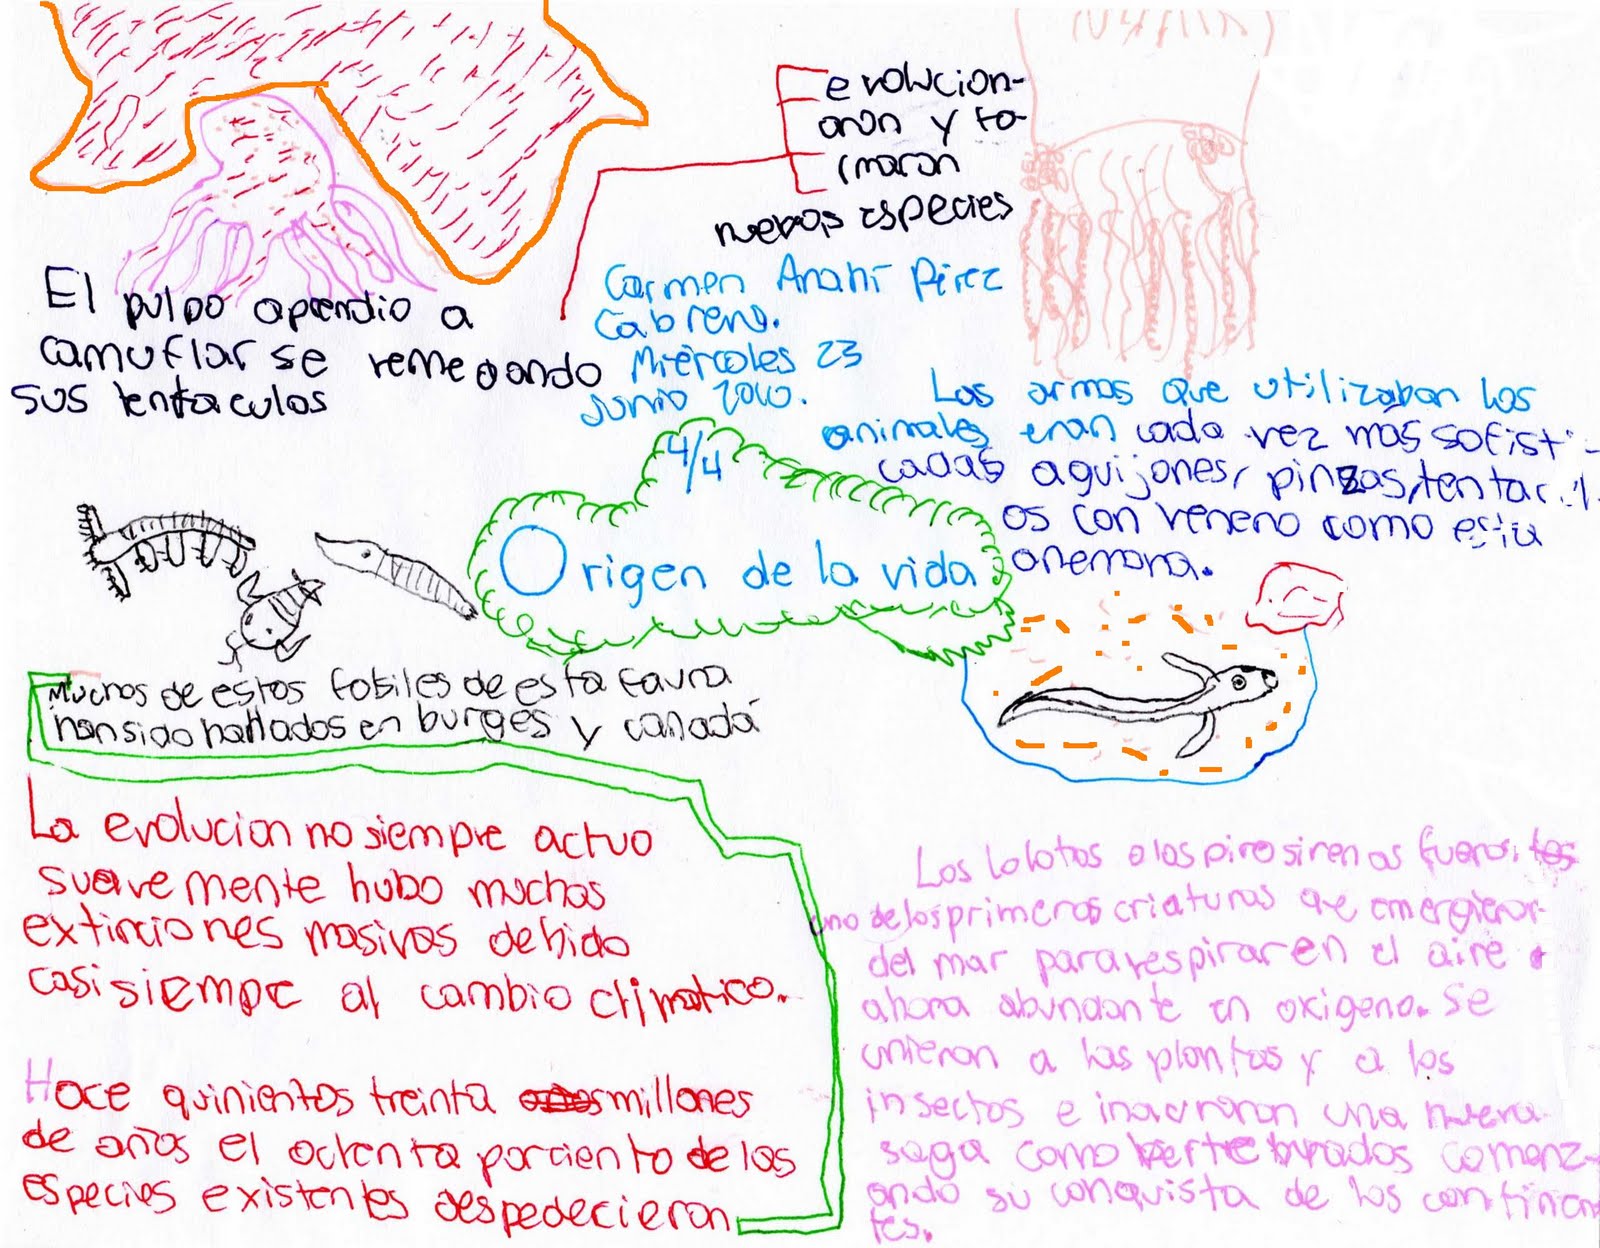 evolucion-
aron y fo-
rmaron
nuevos especies
El pulpo aprendio a
camuflar se remedando
sus tentaculos
Carmen Anahí Pérez
Cabrera.
Miércoles 23
Junio 2010.
4/4
Origen de la vida
Las armas que utilizaban los
animales eran cada vez mas sofisti-
cadas aguijones, pinzas, tentacul-
os con veneno como esta
anemona.
Muchos de estos fosiles de esta fauna
han sido hallados en burges y canadá
La evolucion no siempre actuo
suave mente hubo muchas
extinciones masivas debido
casi siempre al cambio climatico.
Hace quinientos treinta millones
de años el octenta porciento de las
especies existentes despedecieron
Los lolotos o los pirosirenas fueron
uno de los primeros criaturas que emergieron
del mar para respirar en el aire
ahora abundante en oxigeno. Se
unieron a las plantas y a los
insectos e iniciaron una nueva
saga como vertebrados comenz-
ando su conquista de los continen-
tes.